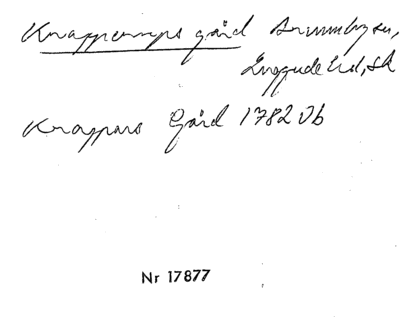 Knapperups gård Brunnbysn,
Luggude hd, Sk
Knappars Gård 1782 Jb
Nr 17877